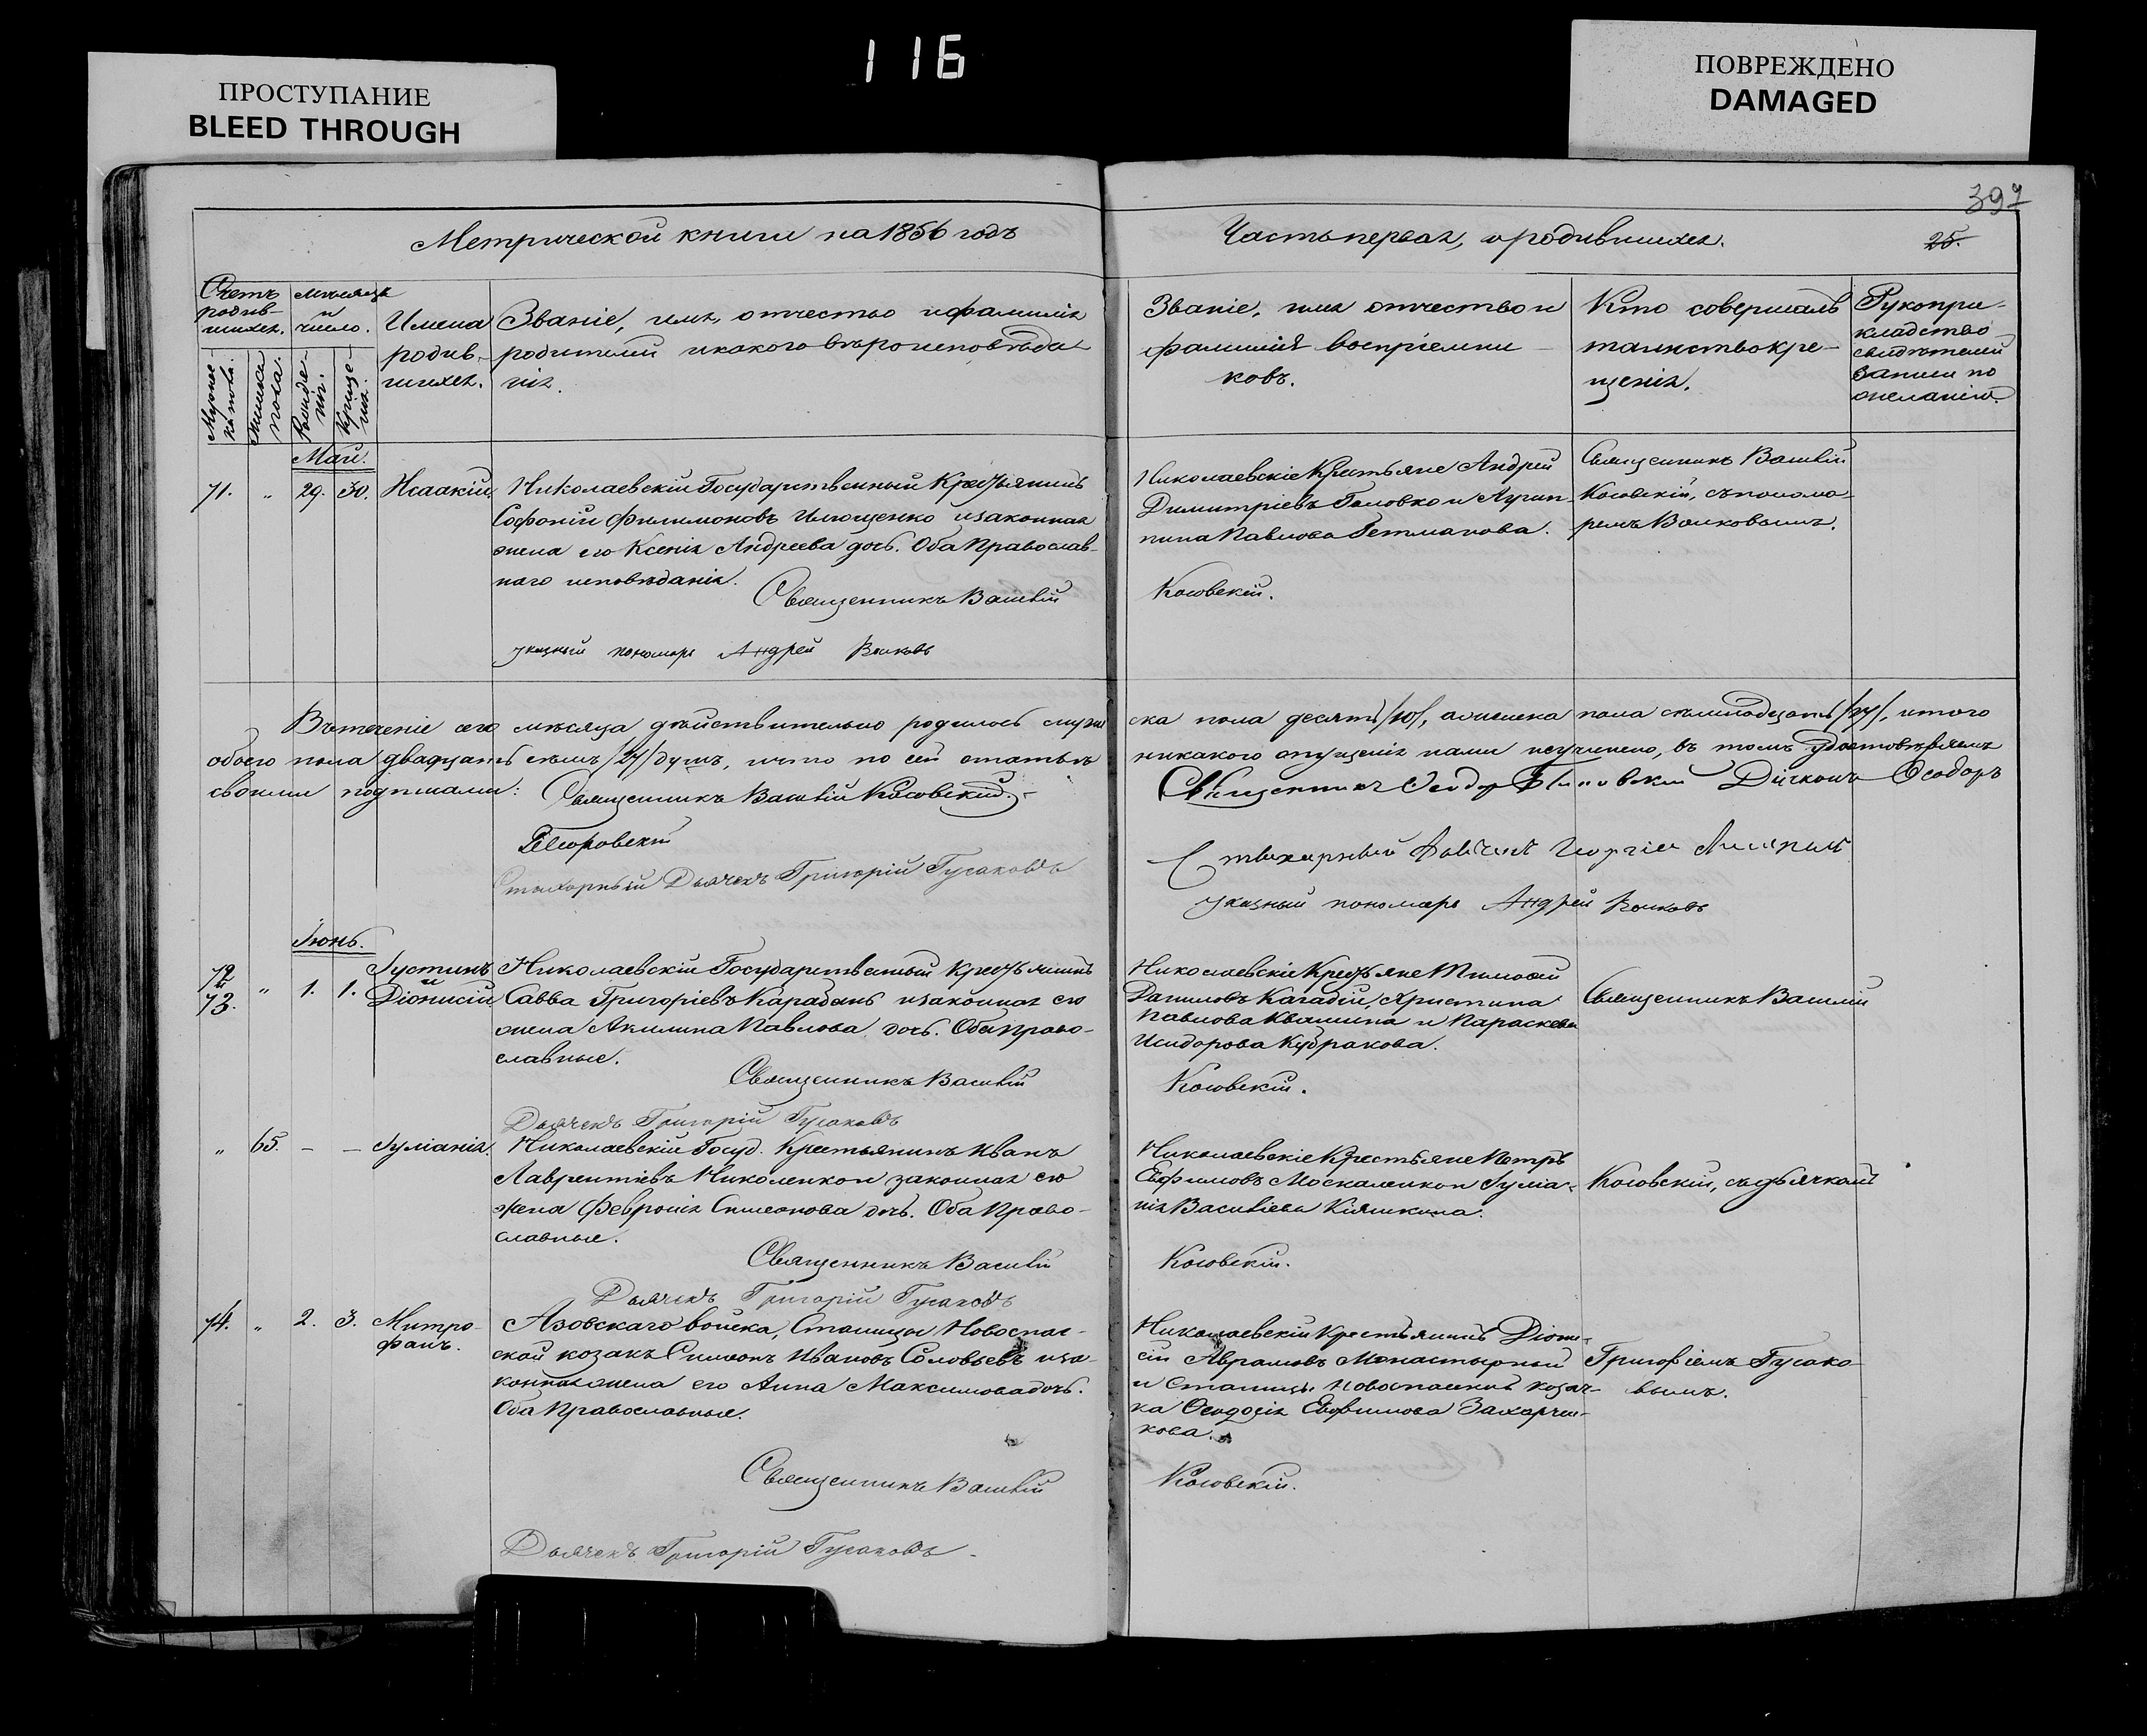 116
ПРОСТУПАНИЕ
BLEED THROUGH
ПОВРЕЖДЕНО
DAMAGED
397
Метрической книги на 1856 годъ
Часть первая, о родившихся.
25.
Счетъ родив-шихся.
Мѣсяцъ и число.
Мужес-ка пола.
Женска пола.
Рожде-нія.
Креще-нія.
Имена
родив-
шихся.
Званіе, имя, отчество и фамилія
родителей и какого вѣроисповѣда-
нія.
Званіе, имя отчество и
фамилія воспріемни-
ковъ.
Кто совершалъ
таинство кре-
щенія.
Рукопри-
кладство
свидѣтелей
записи по
желанію.
Май.
71. " 29. 30. Исаакій
Николаевскій Государственный Крестьянинъ
Софоній Филимоновъ Ильющенко и законная
жена его Ксенія Андреева дочь. Оба Православ-
наго исповѣданія.
Священникъ Василій
указный пономарь Андрей Волковъ
Николаевскіе Крестьяне Андрей
Димитріевъ Головко и
Павлова Гетманова.
Косовскій.
Священникъ Василій
Косовскій, съ понома-
ремъ Волковымъ.
Въ теченіе сего мѣсяца дѣйствительно родилось муже
ска пола десять /10/, а женска пола семнадцать /17/, итого
обоего пола двадцать семь /27/ душъ, и что по сей статьѣ
никакого опущенія нами неучинено, въ томъ удостовѣряемъ
своими подписами: Священникъ Василій Косовскій.
Священникъ Дьяконъ Ѳеодоръ
Стихарный Дьячекъ Григорій Гусаковъ
Стихарный
указный пономарь Андрей Волковъ
Іюнь.
72 и 73. " 1. 1. Іустинъ
и
Діонисій
Николаевскій Государственный Крестьянинъ
Савва Григоріевъ Карабань и законная его
жена Акилина Павлова дочь. Оба Право-
славные.
Священникъ Василій
Дьячекъ Григорій Гусаковъ
Николаевскіе Крестьяне Тимоѳей
Даниловъ Кагадій, Христина
Павлова Квашина и Параскева
Исидорова Кудрякова.
Косовскій.
Священникъ Василій
" 65. – – Іуліанія.
Николаевскій Госуд. Крестьянинъ Иванъ
Лаврентіевъ Николенко и законная его
жена Февронія Симеонова дочь. Оба Право-
славные.
Священникъ Василій
Дьячекъ Григорій Гусаковъ
Николаевскіе Крестьяне Петръ
Евфимовъ Москаленко и Іуліа-
нія Василіева Кияшкина.
Косовскій.
Косовскій, съ дьячкомъ
74. " 2. 3. Митро-
фанъ.
Азовскаго войска, Станицы Новоспас-
ской козакъ Симеонъ Ивановъ Соловьевъ и за-
конная жена его Анна Максимова дочь.
Оба Православные.
Священникъ Василій
Дьячекъ Григорій Гусаковъ
Николаевскій Крестьянинъ Діони-
сій Аврамовъ Монастырный
и Станицы Новоспасской козач-
ка Ѳеодосія Евфимова Захарчен-
кова.
Косовскій.
Григоріемъ Гусако-
вымъ.